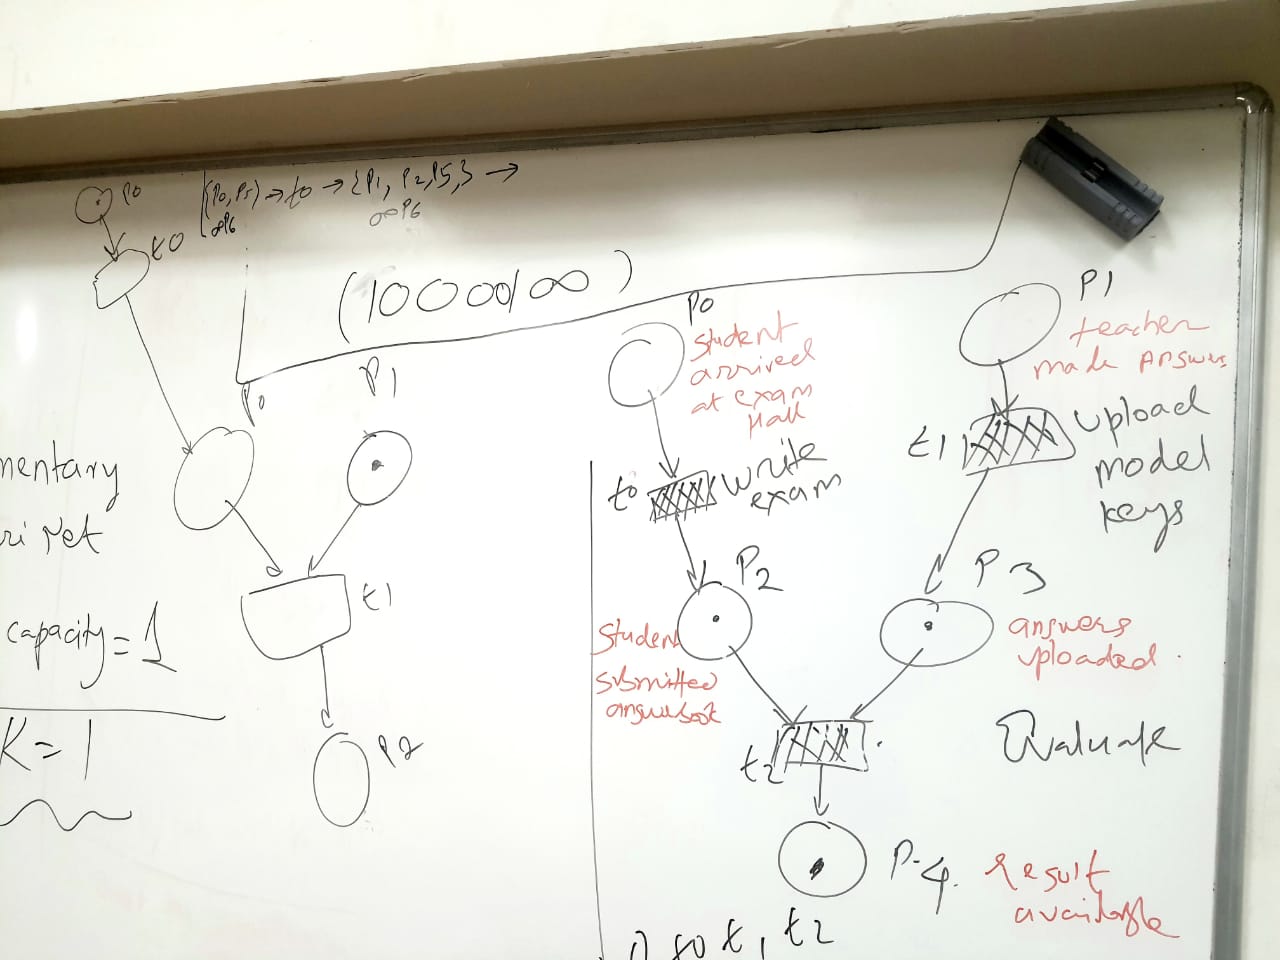 P0
(P0, P5) → t0 → {P1, P2, P5,} →
∞P6
∞P6
t0
(10000100)
P0
P1
t1
P2
mentary
ri Net
capacity = 1
K = 1
P0
Student
arrived
at exam
Hall
t0
write
exam
P1
teacher
made Answers
t1
upload
model
keys
P2
Student
submitted
answerbook
P3
answers
uploaded
t2
Evaluate
P-4.
result
available
t2